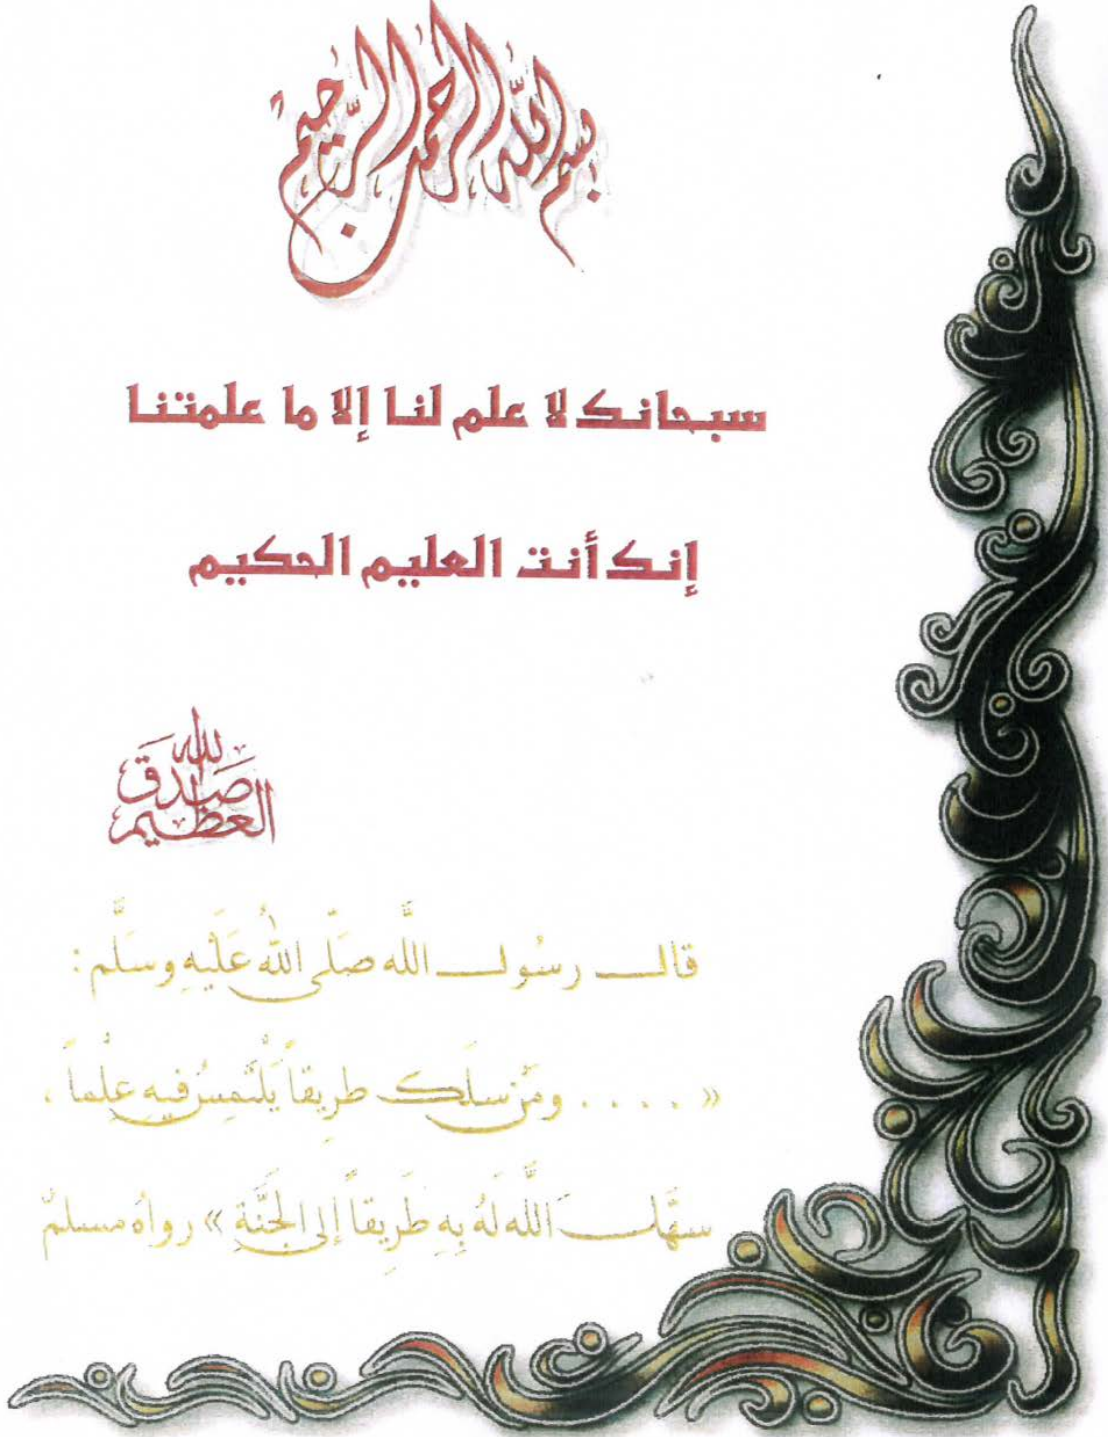 بسم الله الرحمن الرحيم
سبحانك لا علم لنا إلا ما علمتنا
إنك أنت العليم الحكيم
صدق الله العظيم
قال رسُول اللَّه صَلّى اللهُ عَلَيْهِ وسَلَّم :
« . . . . ومَنْ سلَك طرِيقاً يَلْتَمِسُ فيهِ عِلْماً ،
سهَّلَ اللَّه لهُ بِهِ طَرِيقاً إلى الجَنَّةِ » رواهُ مسلمٌ